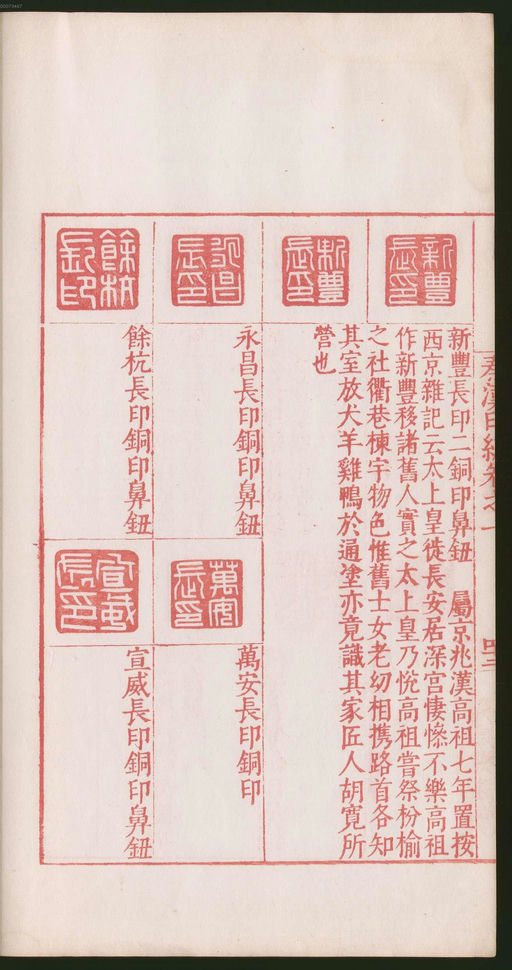 00073447
秦漢印統卷之一
四二
新豐長印
新豐長印
新豐長印二銅印鼻鈕　屬京兆漢高祖七年置按
西京雜記云太上皇徙長安居深宮悽慘不樂高祖
作新豐移諸舊人實之太上皇乃悅高祖嘗祭枌榆
之社衢巷棟宇物色惟舊士女老幼相携路首各知
其室放犬羊雞鴨於通塗亦竟識其家匠人胡寬所
營也
永昌長印
永昌長印銅印鼻鈕
萬安長印
萬安長印銅印
餘杭長印
餘杭長印銅印鼻鈕
宣威長印
宣威長印銅印鼻鈕